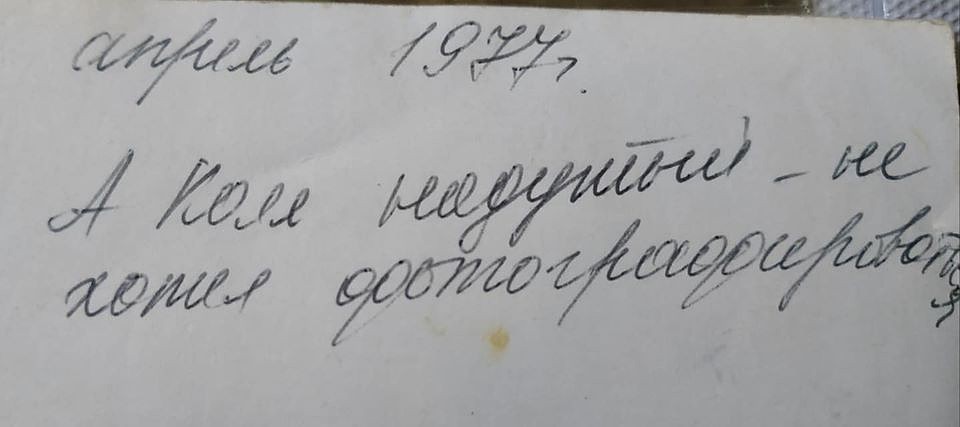 апрель 1977г.
А Коля надутый - не
хотел фотографироваться